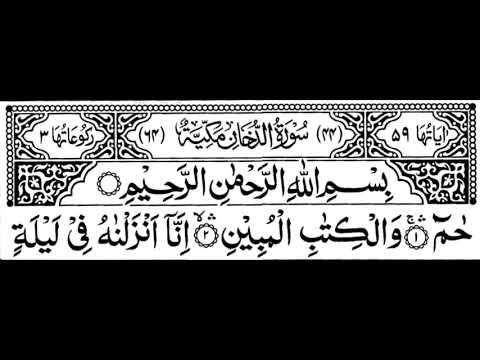 اٰيَاتُهَا ٥٩ (٤٤) سُوْرَةُ الدُّخَانِ مَكِّيَّةٌ (٦٤) رُكُوْعَاتُهَا ٣
بِسْمِ اللّٰهِ الرَّحْمٰنِ الرَّحِيْمِ
حٰمٓ ۚۛ ١ وَالْكِتٰبِ الْمُبِيْنِ ۙۛ ٢ اِنَّاۤ اَنْزَلْنٰهُ فِيْ لَيْلَةٍ